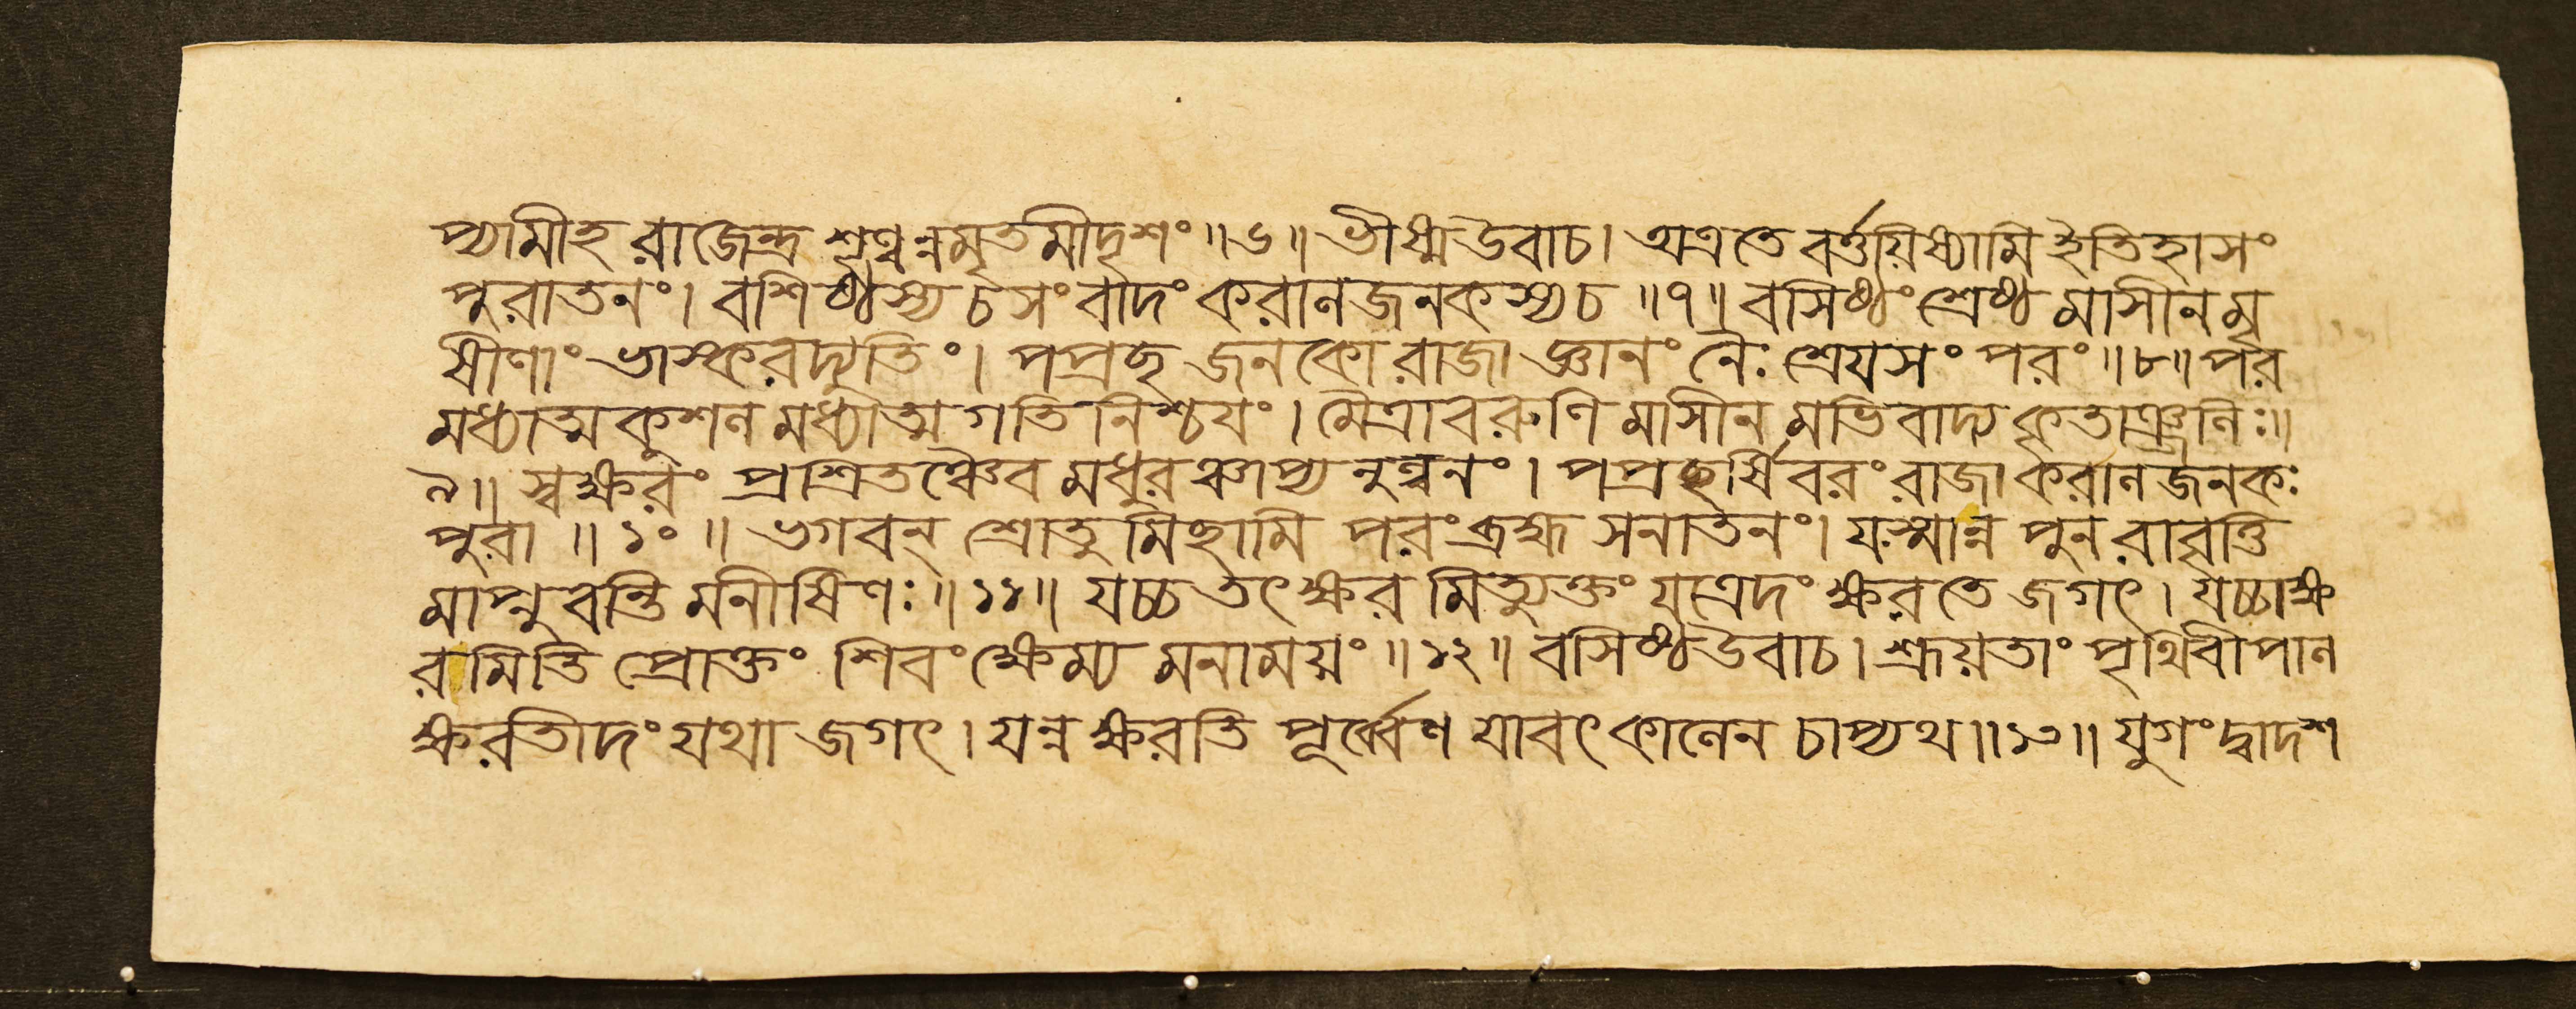 প্যামীহ রাজেন্দ্র শৃণ্বন্নমৃতমীদৃশং॥৬॥ ভীষ্মউবাচ। অত্রতে বর্ত্তয়িষ্যামি ইতিহাসং
পুরাতনং। বশিষ্ঠস্য চসংবাদং করালজনকস্যচ॥৭॥ বসিষ্ঠং শ্রেষ্ঠ মাসীনমৃ
ষীণাং ভাস্করদ্যুতিং। পপ্রছ জনকো রাজা জ্ঞানং নৈঃশ্রেযসং পরং॥৮॥ পর
মধ্যাত্মকুশল মধ্যাত্মগতিনিশ্চযং। মৈত্রাবরুণি মাসীন মভিবাদ্য কৃতাঞ্জলিঃ॥
৯॥ স্বক্ষরং প্রশ্রিতঞ্চৈব মধুরঞ্চাপ্যনুল্বনং। পপ্রছর্ষিবরং রাজা করালজনকঃ
পুরা॥১০॥ ভগবন্ শ্রোতুমিছামি পরংব্রহ্ম সনাতনং। যস্মান্ন পুনরাবৃত্তি
মাপ্নুবন্তি মনীষিণঃ॥১১॥ যচ্চ তৎক্ষর মিত্যুক্তং যত্রেদং ক্ষরতে জগৎ। যচ্চাক্ষ
রমিতি প্রোক্তং শিবং ক্ষেম্য মনাময়ং॥১২॥ বসিষ্ঠউবাচ। শ্রূয়তাং পৃথিবীপাল
ক্ষরতীদং যথা জগৎ। যন্নক্ষরতি পূর্ব্বেণ যাবৎকালেন চাপ্যথ॥১৩॥ যুগংদ্বাদশ